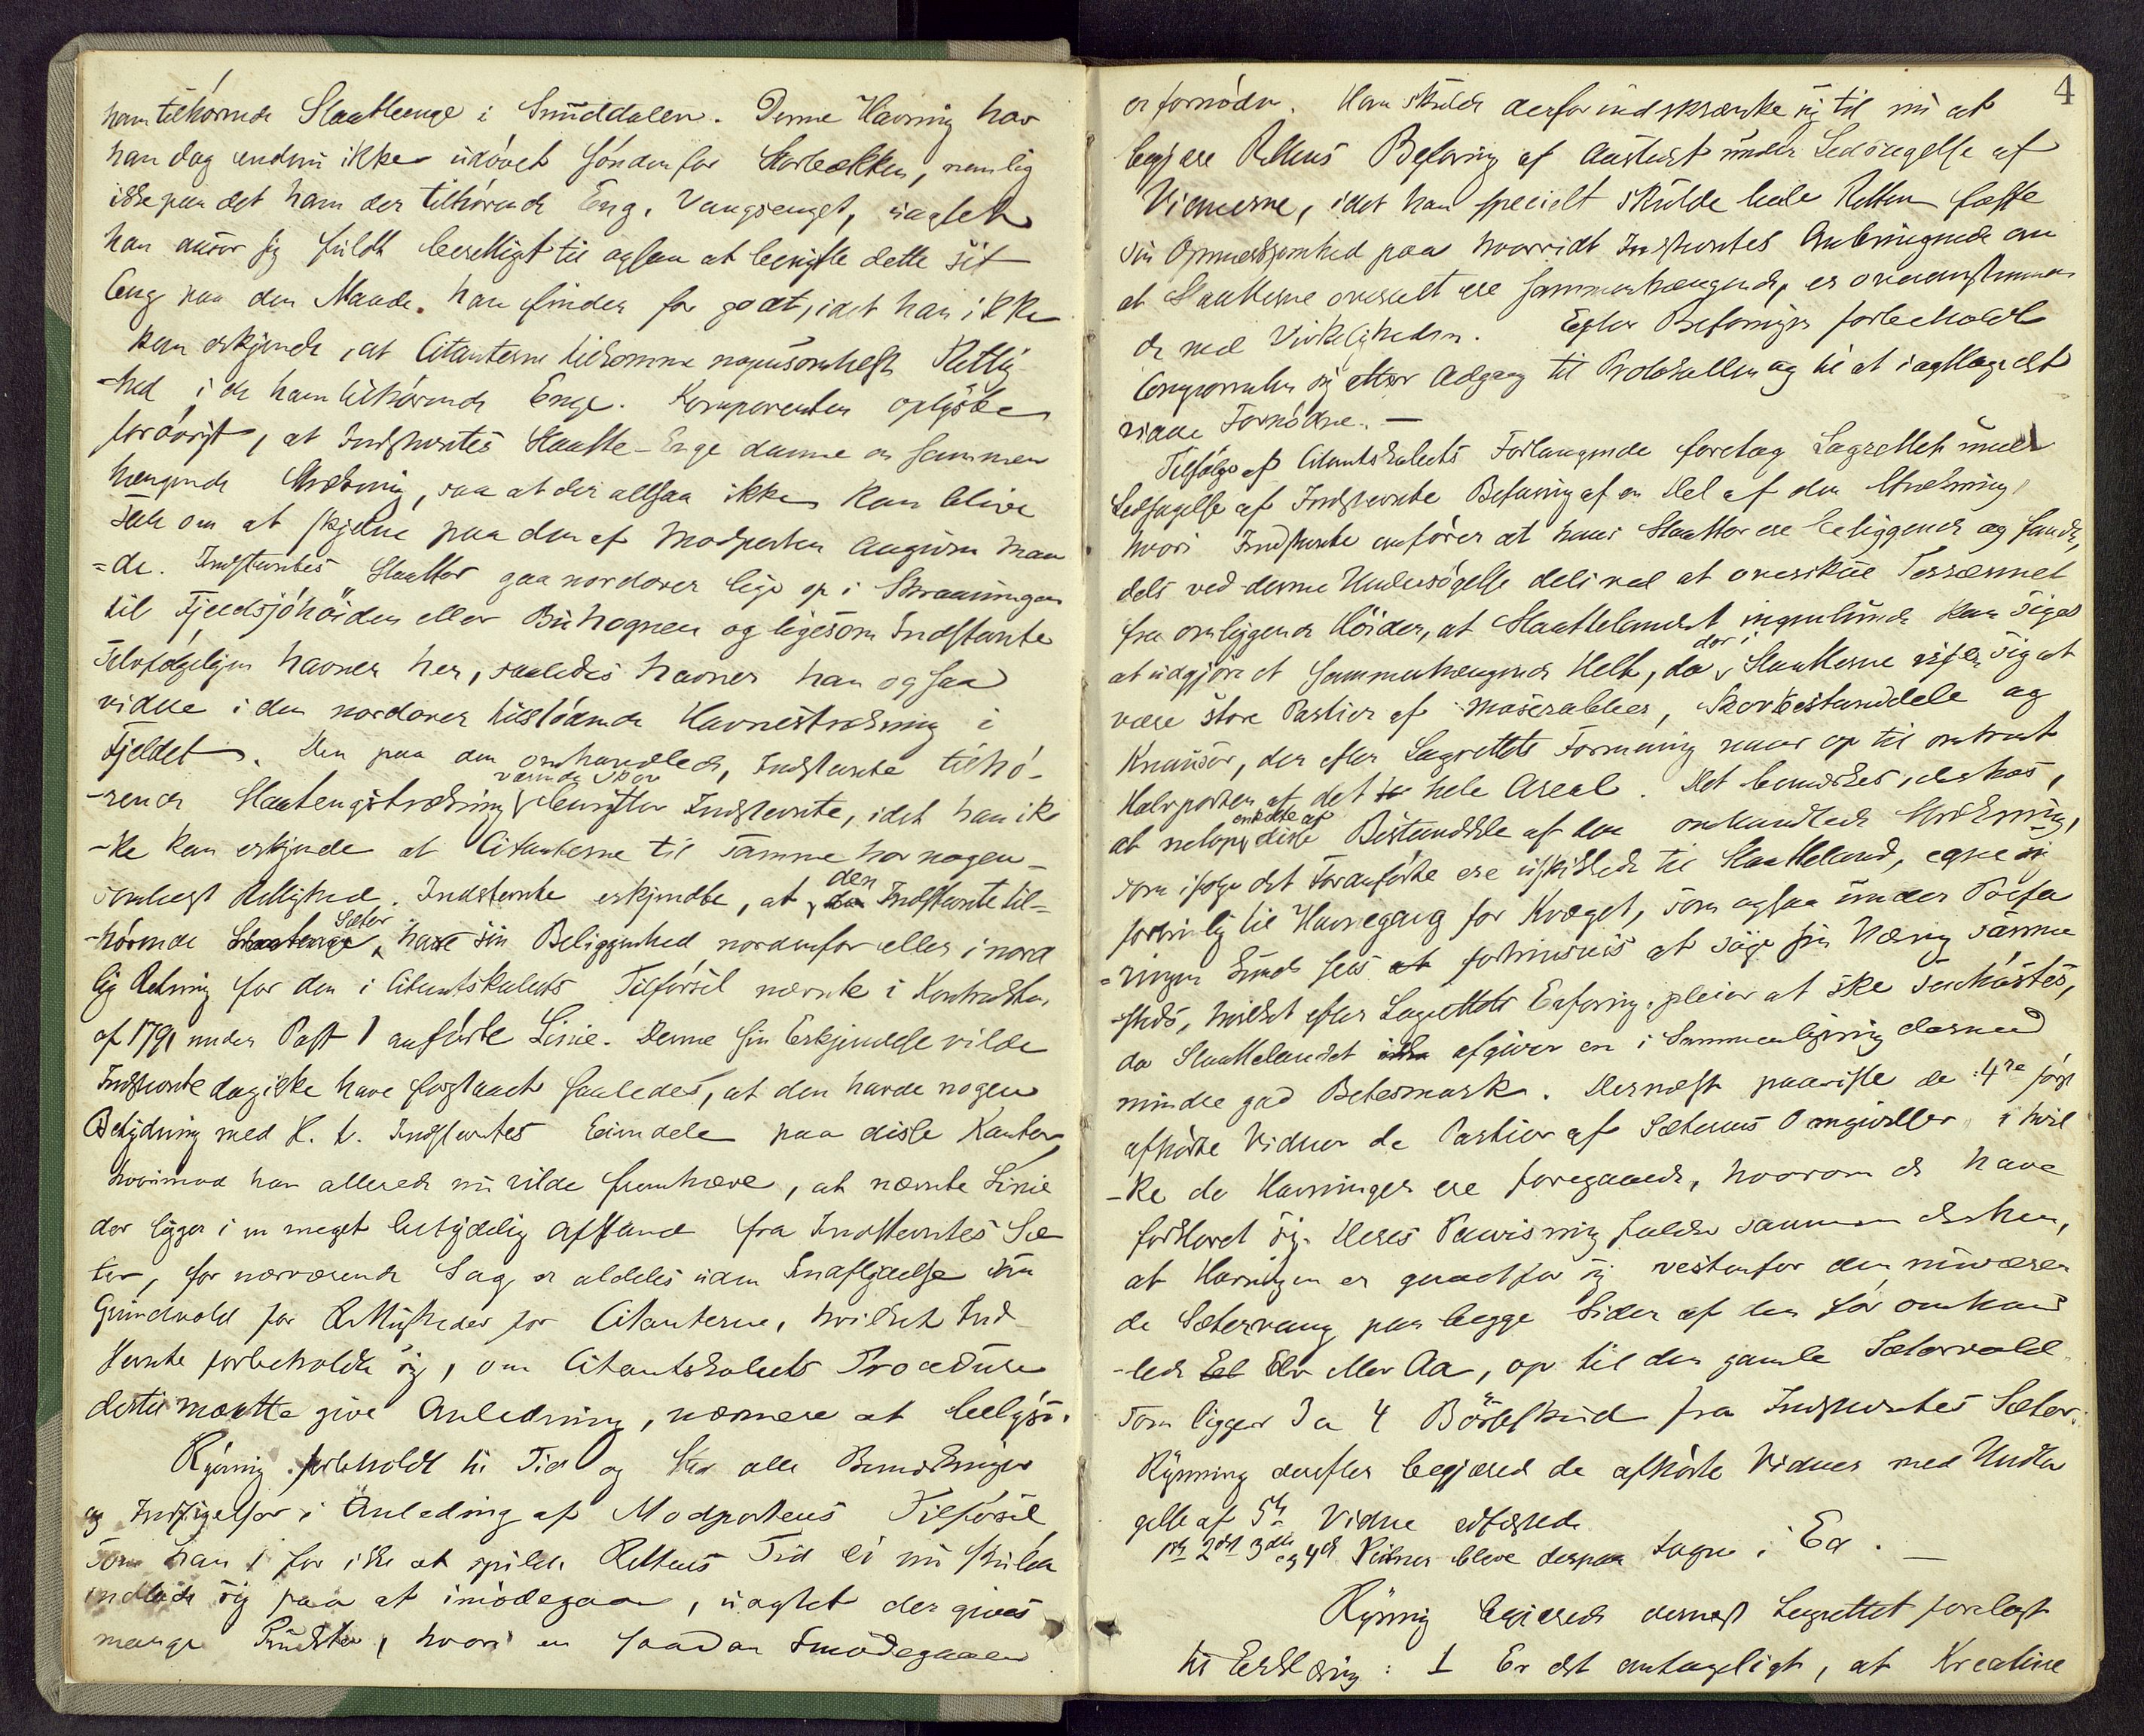 ham tilhørende Slaatteenge i Smuddalen. Denne Havning har
han dog endnu ikke udøvet søndenfor Storbækken, nemlig
ikke paa det ham der tilhørende Eng, Vangsenget, uagtet
han anser sig fuldt berettiget til ogsaa at benytte dette sit
Eng paa den Maade han finder for godt, idet han ikke
kan erkjende, at Citanterne tilkomme nogensomhelst Rettig-
-hed i de ham tilhørende Enge. Komparenten oplyste
forøvrigt, at Indstevntes Slaatte-Enge danne en sammen
hængende Strækning, saa at der altsaa ikke kan blive
Tale om at skjelne paa den af Modparten angivne Maa
=de. Indstevntes Slaatter gaa nordover lige op i Skraaningen
til Fjeldsjøhøiden eller Buhognen og ligesom Indstevnte
selvfølgeligen havner her, saaledes havner han ogsaa
videre i den nordover tilstødende Havnestrækning i
Fjeldet. Den paa den omhandlede, Indstevnte tilhø-
værende Skov
-rende Slaatengstrækning benytter Indstevnte, idet han ik
-ke kan erkjende at Citanterne til samme har nogen-
somhelst Rettighed. Indstevnte erkjendte, at den Indstevnte til=
-hørende Slaatenge Sæter, have sin Beliggenhed nordenfor eller i nord
lig Retning for den i Citantskabets Tilførsel nævnte i Kontrakten
af 1791 under Post 1 anførte Linie. Denne sin Erkjendelse vilde
Indstevnte dog ikke have forstaaet saaledes, at den havde nogen
Betydning med H. t. Indstevntes Eiendele paa disse Kanter,
hvorimod han allerede nu vilde fremhæve, at nævnte Linie
der ligger i en meget betydelig Afstand fra Indstevntes Sæ
ter, for nærværende Sag er aldeles uden Indflydelse som
Grundvold for Rettigheder for Citanterne, hvilket Ind-
stevnte forbeholdt sig, om Citantskabets Procedure
dertil maatte give Anledning, nærmere at belyse.
Rynning forbeholdt til Tid og Sted alle Bemærkninger
og Indsigelser i Anledning af Modpartens Tilførsel
som han, for ikke at spilde Rettens Tid ei nu skulde
indlade sig paa at imødegaa, uagtet der gives
mange Punkter, hvori en saadan Imødegaaen
4
er fornøden. Han skulde derfor indskrænke sig til nu at
begjære Rettens Befaring af Aastedet under Ledsagelse af
Vidnerne, idet han specielt skulde bede Retten fæste
sin Opmerksomhed paa hvorvidt Indstevntes Anbringende om
at Slaatterne overalt ere sammenhængende, er overensstemmen
de med Virkeligheden. Efter Befaringen forbeholdt
Comparenten sig atter Adgang til Protokollen og til at iagttage det
videre Fornødne. —
Tilfølge af Citantskabets Forlangende foretog Lagrettet under
Ledsagelse af Indstevnte Befaring af en Del af den Strækning,
hvori Indstevnte anfører at hans Slaatter ere beliggende og fandt,
dels ved denne Undersøgelse dels ved at overskue Terrænnet
fra omliggende Høider, at Slaattelandet ingenlunde kan siges
at udgjøre et sammenhængende Helt, da der i Slaatterne viser sig at
være store Partier af Moserabber, Skovbestanddele og
Knauser, der efter Lagrettets Formening naar op til omtrent
Halvparten af det hele Areal. Det bemærkes, derhos,
at netop endte af disse Bestanddele af den omhandlede Strækning,
som ifølge det Foranførte ere uskikkede til Slaatteland, egne sig
fortrinlig til Havnegang for Kvæget, som ogsaa under Befa
=ringen kunde sees fortrinsvis at søge sin Næring samme
steds, hvilket efter Lagrettets Erfaring pleier at ske senhøstes,
da Slaattelandet afgiver en i Sammenligning dermed
mindre god Betesmark. Dernæst paaviste de 4re først
afhørte Vidner de Partier af Sæterens Omgivelser i hvil
-ke de Havninger ere foregaaede, hvorom de have
forklaret sig. Deres Paavisning faldt sammen derhen,
at Havningen er gaaet for sig vestenfor den nuværen
de Sætervang paa begge Sider af den før omhand
-lede Elv eller Aa, op til den gamle Sætervold
som ligger 3 a 4 Børseskud fra Indstevntes Sæter.
Rynning derefter begjærede de afhørte Vidner med Undta
gelse af 5te Vidne edfæstede
1ste 2det 3die og 4de Vidner bleve derpaa tagne i Ed. —
Rynning begjærede dernæst Lagrettet forelagt
til Erklæring: 1 Er det antageligt, at Kreatine